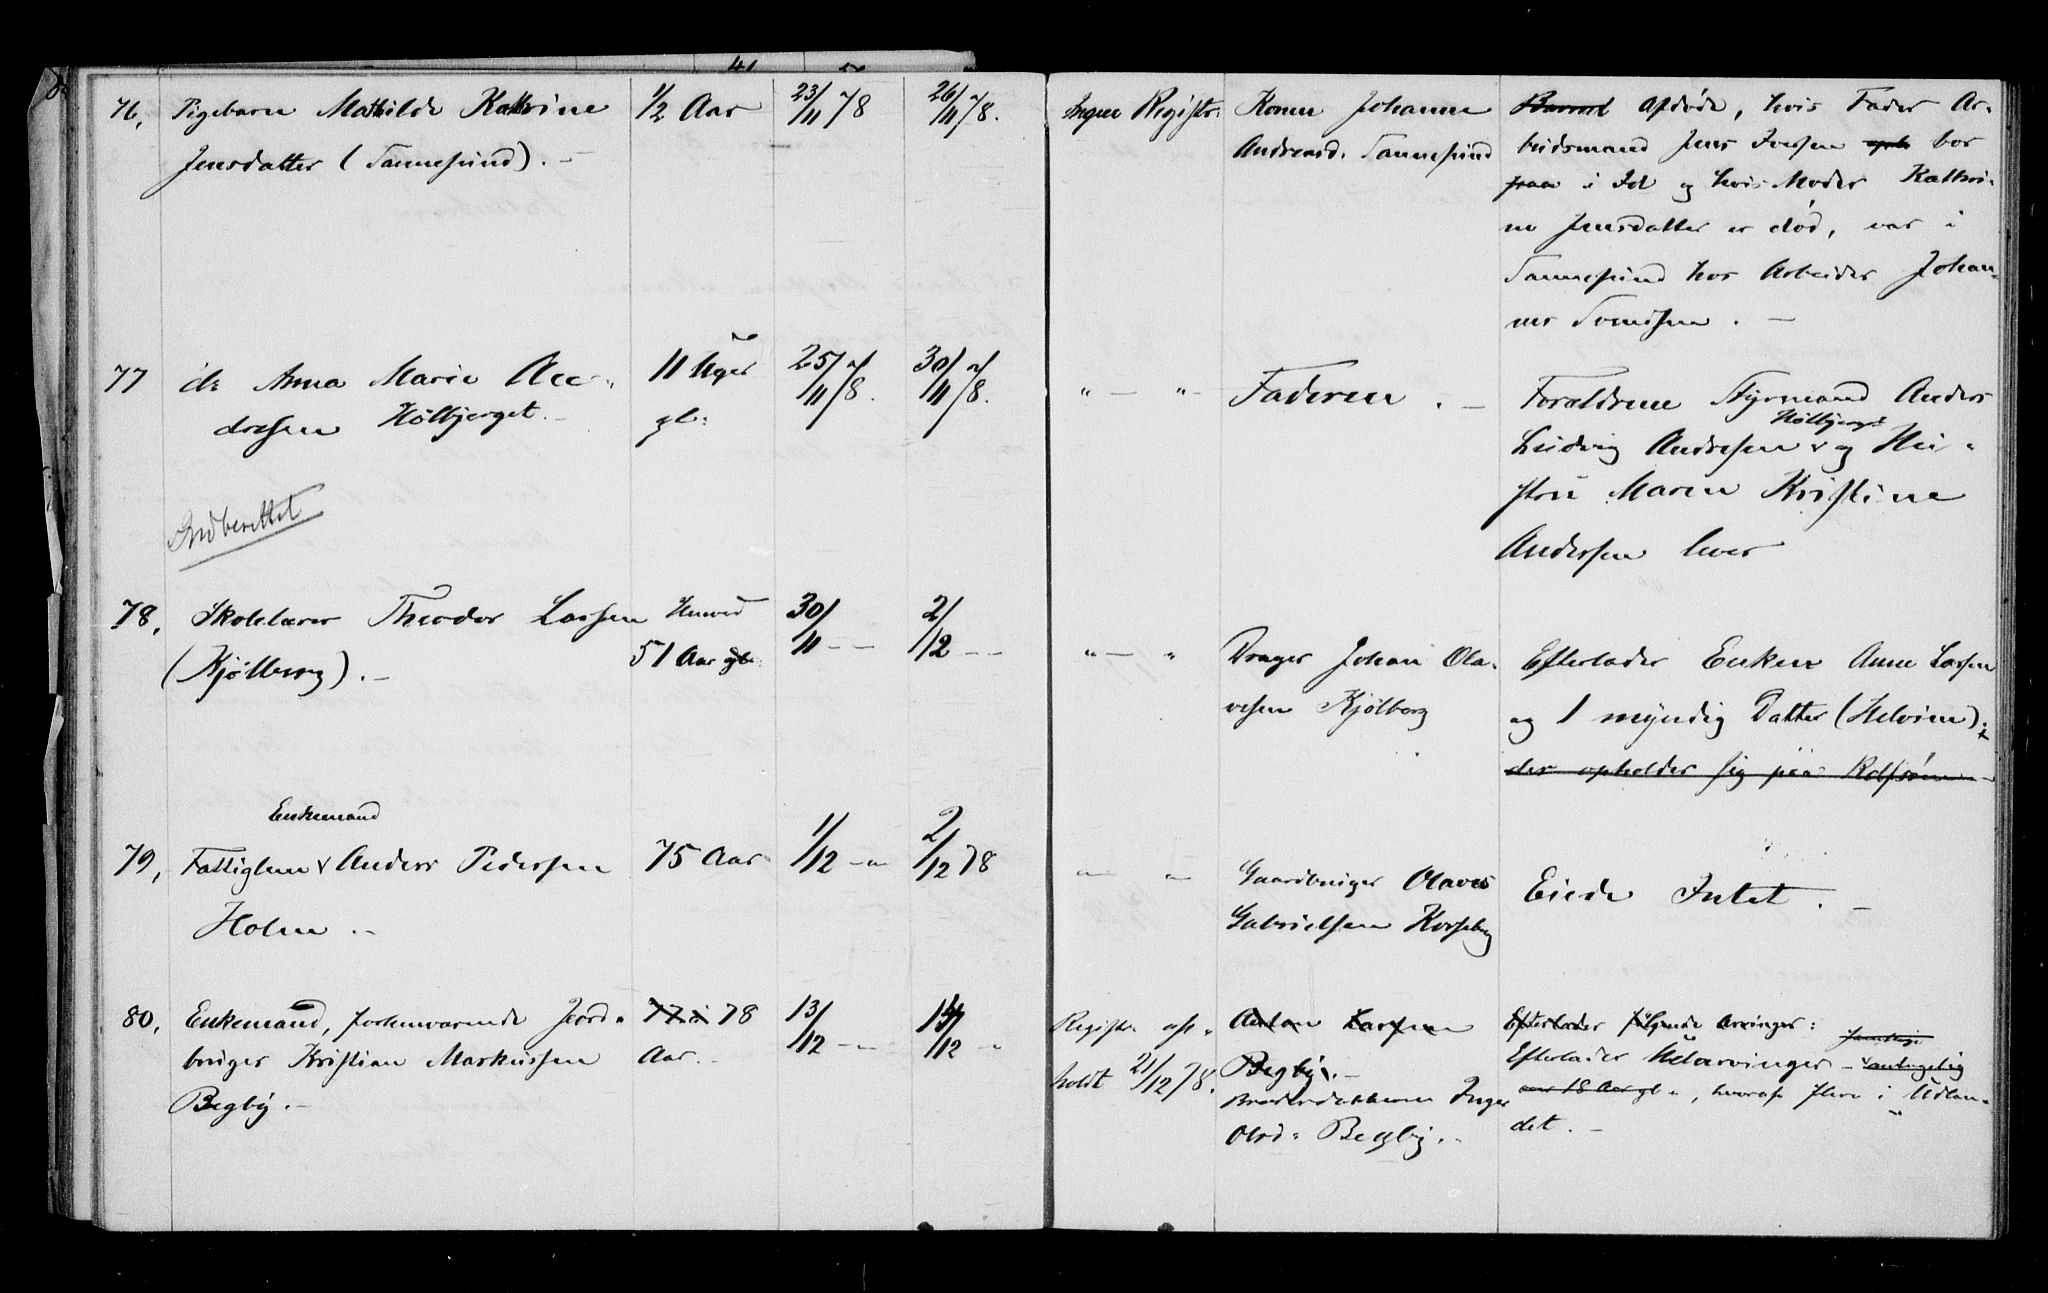 76, Pigebarn Mathilde Kathrine
Jensdatter (Tannesund). –
1/2 Aar
23/11 78
26/11 78.
Ingen Registr:
Konen Johanne
Andreasd. Tannesund
Barnet Afdøde, hvis Fader Ar-
beidsmand Jens Iversen oph bor
paa i Id og hvis Moder Kathri-
ne Jensdatter er død, var i
Tannesund hos Arbeider Johan-
nes Svendsen . –
77 do Anna Marie An-
dresen Hølbjerget. –
11 Uger
gl:
25/11 78.
30/11 78.
" – " –
Faderen . –
Forældrene Styrmand Anders
Hølbjerget
Ludvig Andresen v og Hu-
stru Maren Kristine
Andersen lever
Indberettet
78, Skolelærer Theodor Lassen
(Kjølberg) . –
51 Aar gl:
30/11 – –
2/12 – –
" – "
Drager Johan Ola-
vesen Kjølberg
Efterlader Enken Anne Lassen
og 1 myndig Datter (Helvine).
der opholder sig paa Rolfsøen
Enkemand
79, Fattiglem v Anders Pedersen
Holm . –
75 Aar
1/12 – "
2/12 78
" – "
Gaardbruger Olaves
Gabrielsen Korseberg
Eiede Intet . –
80, Enkemand, forhenværende Jord-
bruger Kristian Markussen
Begby. –
77 78
Aar. –
13/12 – "
14/12 – "
Registr: af-
holdt 21/12 78.
Anton Larsen
Begby. –
Broderdatteren Inger
Olsd: Begby. –
Efterlader følgende Arvinger:
samtlige
Efterlader Udarvinger – v antagelig
over 18 Aar gl , hvoraf flere i Udlan-
det. –